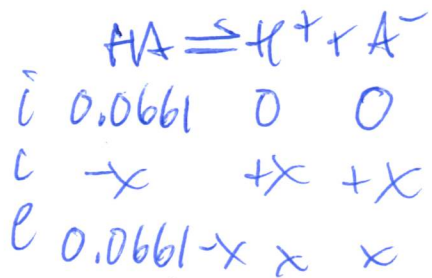 HA ⇌ H⁺ + A⁻
i 0.0661 0 0
c -x +x +x
e 0.0661-x x x